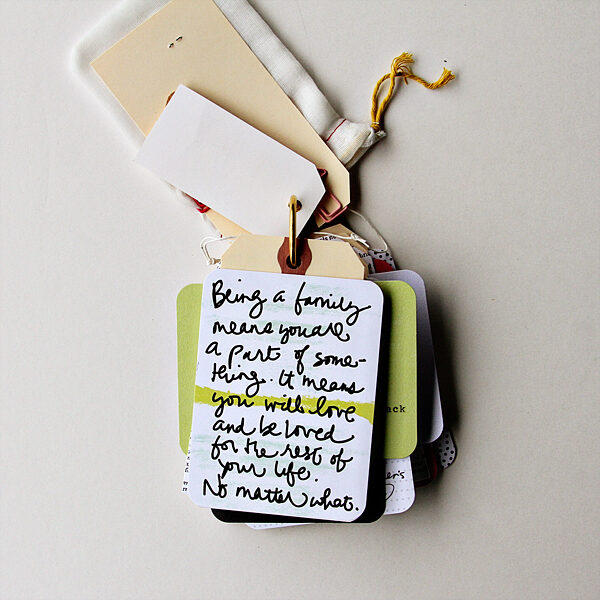 Being a family
means you are
a part of some-
thing. It means
you will love
and be loved
for the rest of
your life.
No matter what.
ack
er's